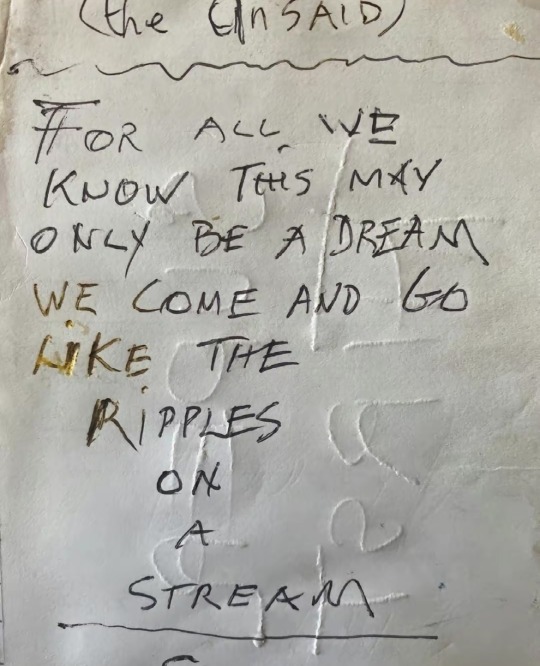 (the UnSAID)
FOR ALL WE
KNOW THIS MAY
ONLY BE A DREAM
WE COME AND GO
LIKE THE
RIPPLES
ON
A
STREAM